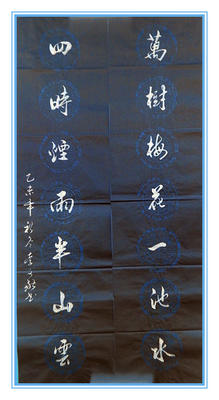 萬樹梅花一池水
四時煙雨半山雲
乙未年